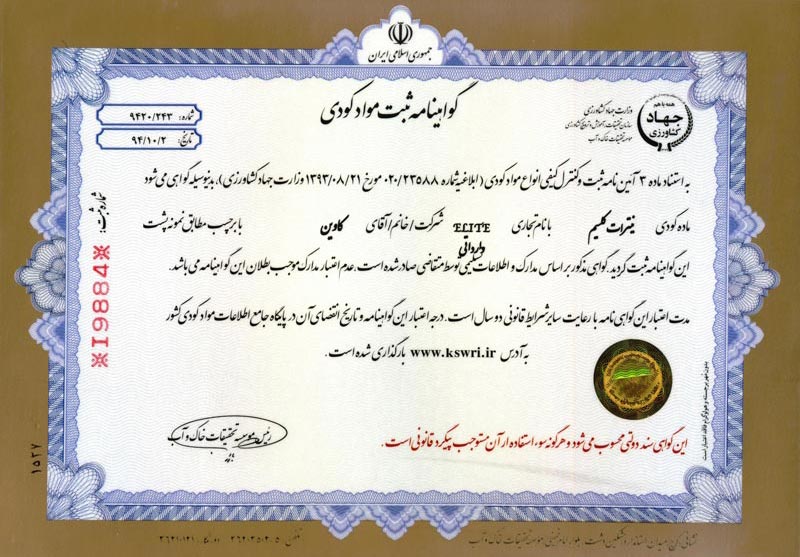 جمهوری اسلامی ایران
گواهینامه ثبت مواد کودی
شماره: ۹۴۲۰/۲۴۳
تاریخ: ۹۴/۱۰/۲
همه با هم
جهاد
کشاورزی
وزارت جهاد کشاورزی
سازمان تحقیقات، آموزش و ترویج کشاورزی
موسسه تحقیقات خاک و آب
به استناد ماده ۳ آئین نامه ثبت و کنترل کیفی انواع مواد کودی (ابلاغیه شماره ۰۲۰/۲۳۵۸۸ مورخ ۱۳۹۳/۰۸/۲۱ وزارت جهاد کشاورزی)، بدینوسیله گواهی می شود
ماده کودی نیترات کلسیم با نام تجاری ELITE شرکت/خانم/آقای کاوین با برچسب مطابق نمونه پشت
وارداتی
این گواهینامه ثبت گردید. گواهی مذکور بر اساس مدارک و اطلاعات تسلیمی توسط متقاضی صادر شده است. عدم اعتبار مدارک موجب بطلان این گواهینامه می باشد.
مدت اعتبار این گواهی نامه با رعایت سایر شرایط قانونی دو سال است. درجه اعتبار این گواهینامه و تاریخ انقضای آن در پایگاه جامع اطلاعات مواد کودی کشور
به آدرس www.kswri.ir بارگذاری شده است.
شماره ثبت:
※19884※
بدون مهر برجسته و هولوگرام فاقد اعتبار است
رئیس موسسه تحقیقات خاک و آب
این گواهی سند دولتی محسوب می شود و هرگونه سوء استفاده از آن مستوجب پیگرد قانونی است.
۱۵۲۷